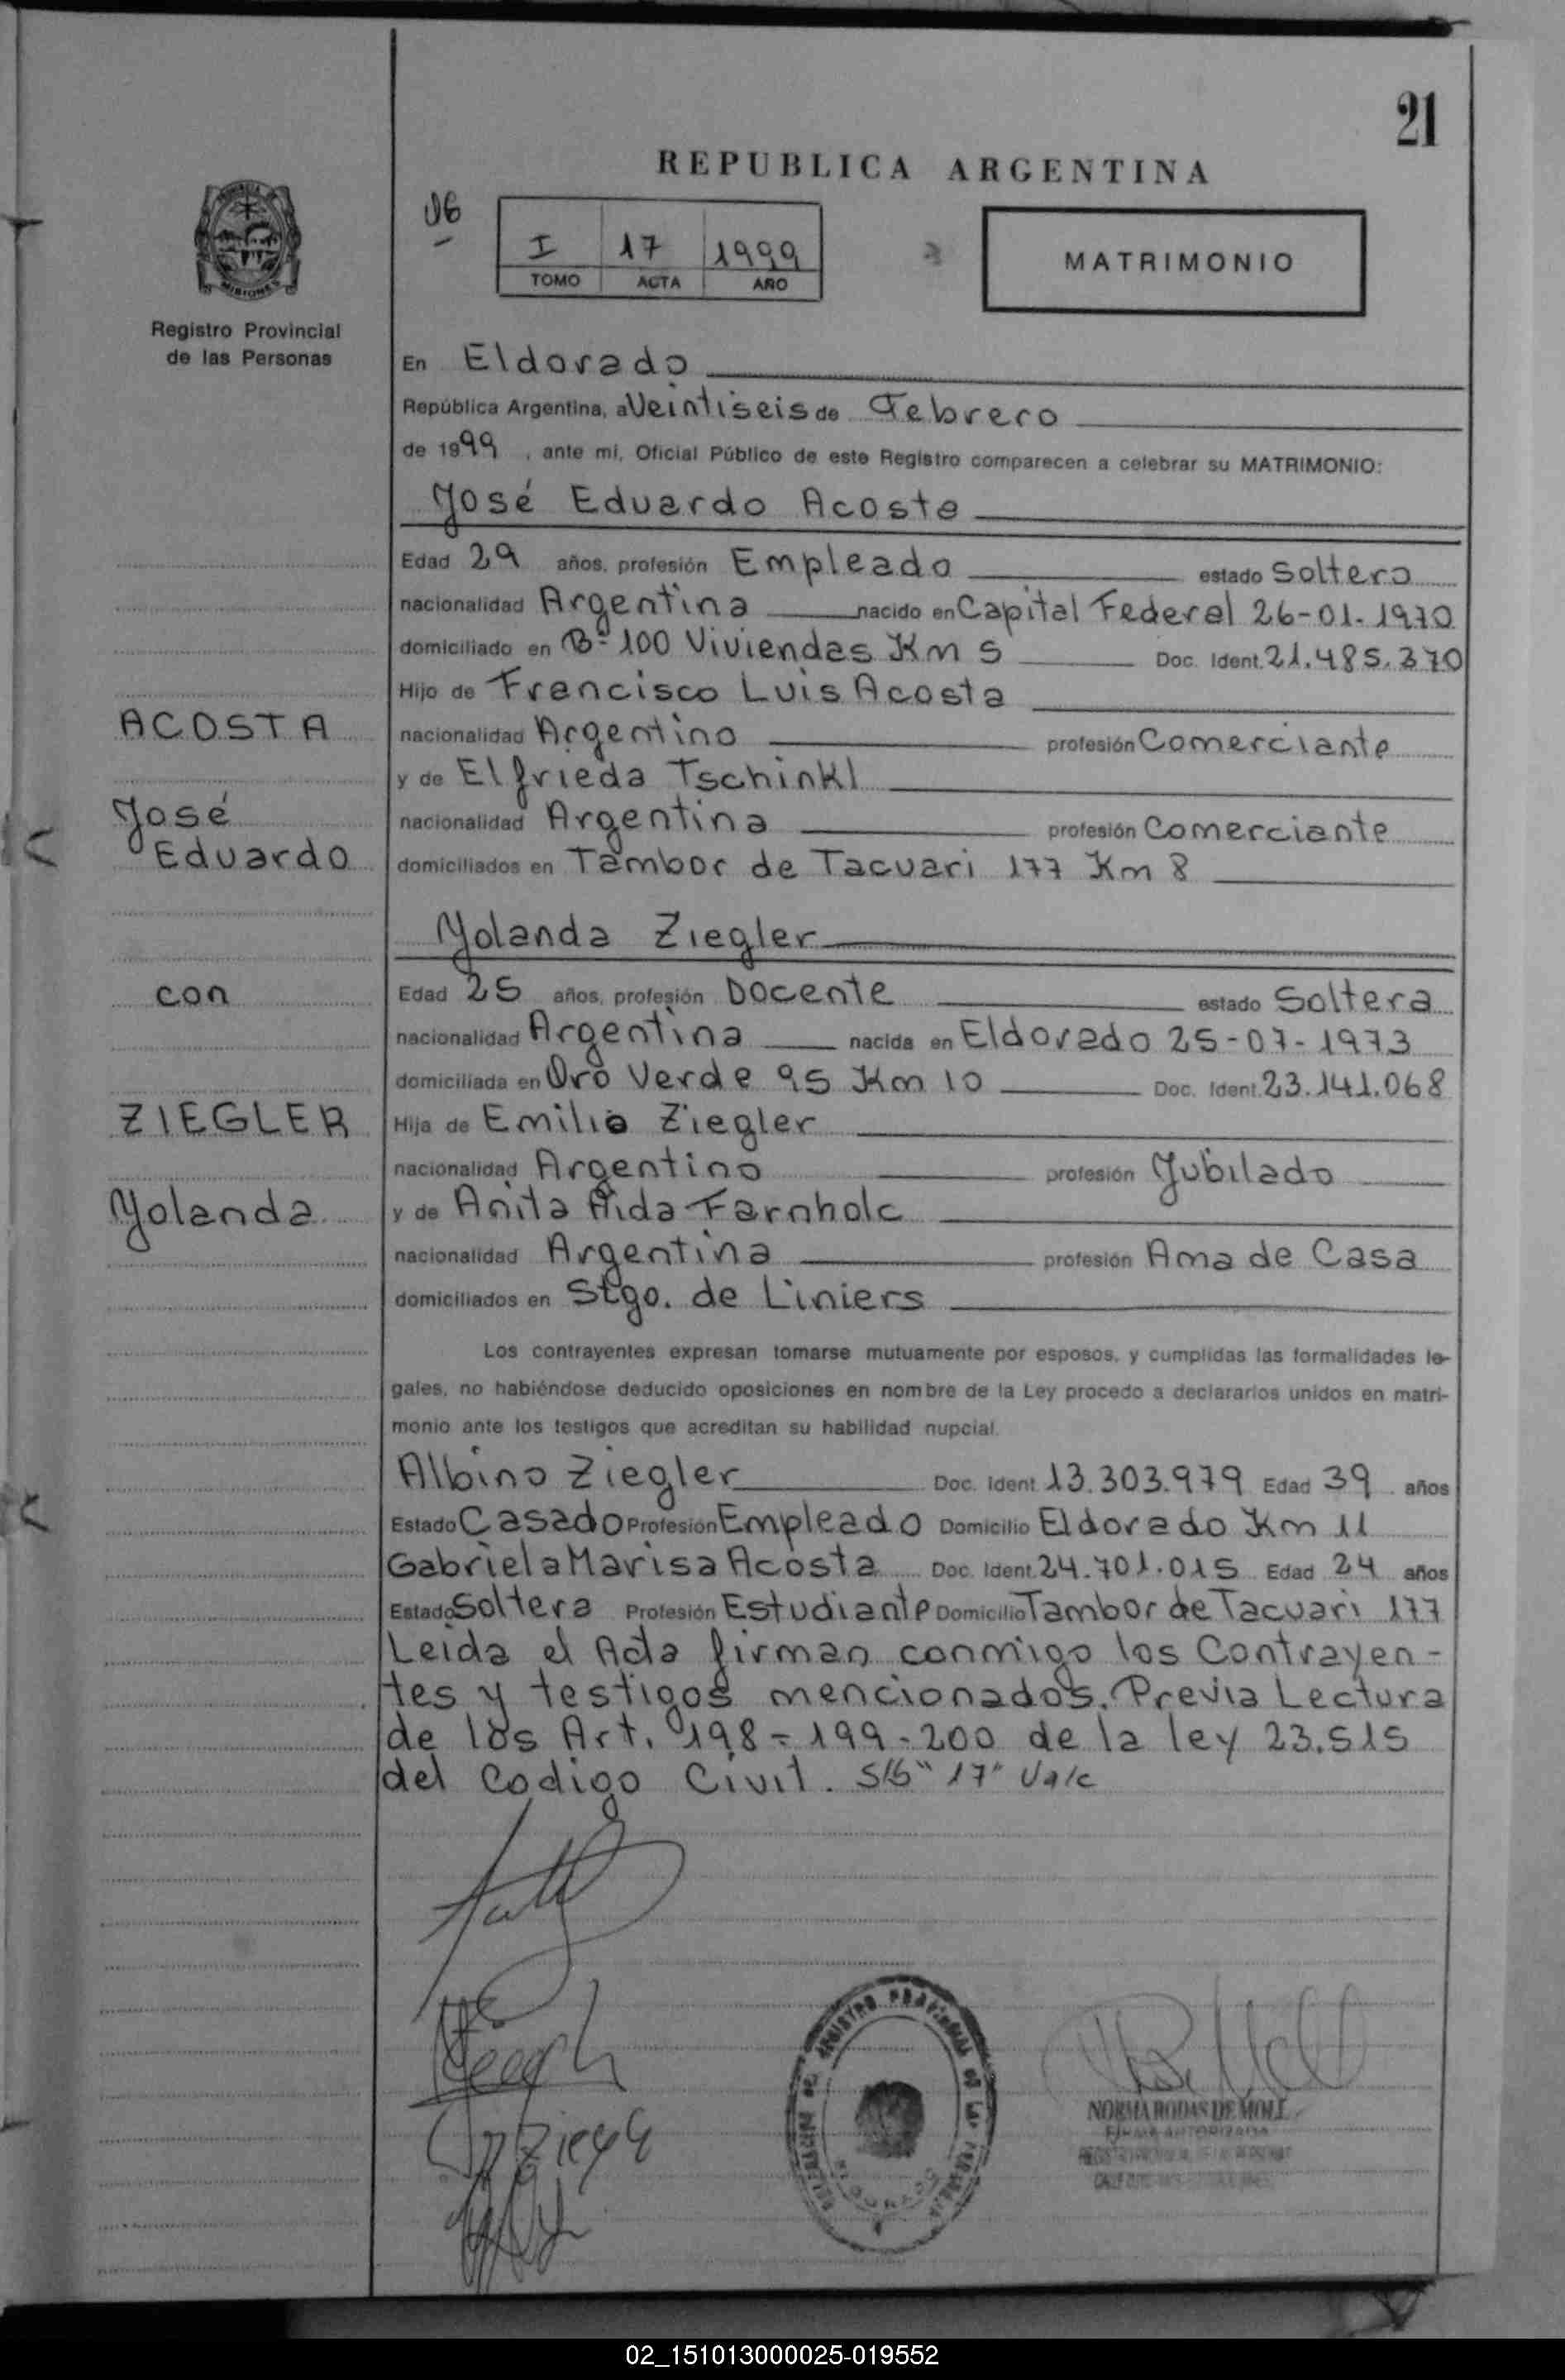 21
REPUBLICA ARGENTINA
06
I 17 1999
TOMO ACTA AÑO
MATRIMONIO
MISIONES
Registro Provincial
de las Personas
En Eldorado
República Argentina, a Veintiseis de Febrero
de 1999, ante mi, Oficial Público de este Registro comparecen a celebrar su MATRIMONIO:
José Eduardo Acosta
Edad 29 años, profesión Empleado estado Soltero
nacionalidad Argentina nacido en Capital Federal 26-01-1970
domiciliado en Bº 100 Viviendas Km 5 Doc. Ident. 21.485.370
Hijo de Francisco Luis Acosta
ACOSTA
nacionalidad Argentino profesión Comerciante
y de Elfrieda Tschinkl
José
nacionalidad Argentina profesión Comerciante
Eduardo
domiciliados en Tambor de Tacuari 177 Km 8
Yolanda Ziegler
con
Edad 25 años, profesión Docente estado Soltera
nacionalidad Argentina nacida en Eldorado 25-07-1973
domiciliada en Oro Verde 95 Km 10 Doc. Ident. 23.141.068
ZIEGLER
Hija de Emilio Ziegler
nacionalidad Argentino profesión Jubilado
Yolanda
y de Anita Aida Farnholc
nacionalidad Argentina profesión Ama de Casa
domiciliados en Stgo. de Liniers
Los contrayentes expresan tomarse mutuamente por esposos, y cumplidas las formalidades le-
gales, no habiéndose deducido oposiciones en nombre de la Ley procedo a declararlos unidos en matri-
monio ante los testigos que acreditan su habilidad nupcial.
Albino Ziegler Doc. Ident. 13.303.979 Edad 39 años
Estado Casado Profesión Empleado Domicilio Eldorado Km 11
Gabriela Marisa Acosta Doc. Ident. 24.701.015 Edad 24 años
Estado Soltera Profesión Estudiante Domicilio Tambor de Tacuari 177
Leida el Acta firman conmigo los Contrayen-
tes y testigos mencionados. Previa Lectura
de los Art. 198-199-200 de la ley 23.515
del Codigo Civil. S/b "17" Vale
REGISTRO PROVINCIAL DE LAS PERSONAS
NORMA RODAS DE MOLL
FIRMA AUTORIZADA
02_151013000025-019552